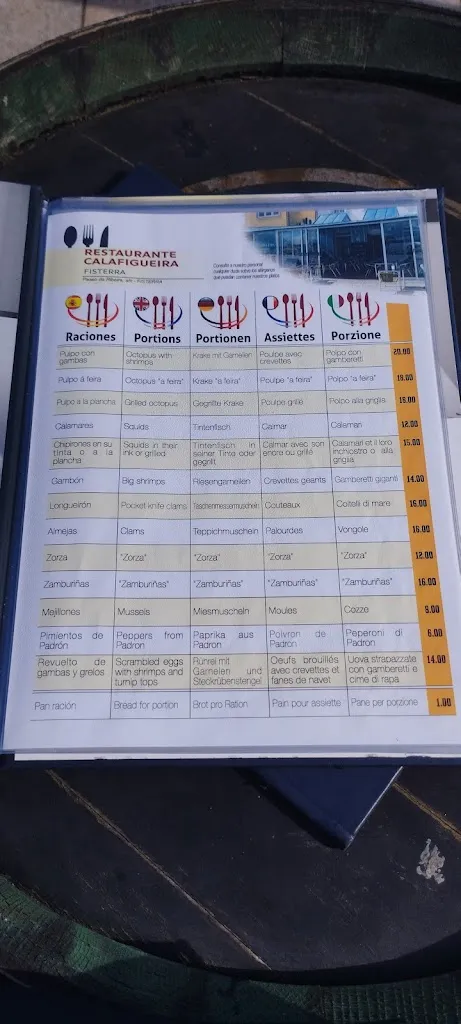 RESTAURANTE
CALAFIGUEIRA
FISTERRA
Consulte a nuestro personal
cualquier duda sobre los alérgenos
que puedan contener nuestros platos.
Raciones Portions Portionen Assiettes Porzione
Pulpo con gambas Octopus with shrimps Krake mit Garnelen Poulpe avec crevettes Polpo con gamberetti 20.00
Pulpo á feira Octopus "a feira" Krake "a feira" Poulpe "a feira" Polpo "a feira"
Pulpo a la plancha Grilled octopus Gegrillte Krake Poulpe grillé Polpo alla griglia
Calamares Squids Tintenfisch Calmar Calamari 12.00
Chipirones en su tinta o a la plancha Squids in their ink or grilled Tintenfisch in seiner Tinte oder gegrillt Calmar avec son encre ou grillé Calamari et il loro inchiostro o alla griglia 15.00
Gambón Big shrimps Riesengarnelen Crevettes géants Gamberetti giganti 14.00
Longueirón Pocket-knife clams Taschenmessermuscheln Couteaux Coltelli di mare 16.00
Almejas Clams Teppichmuscheln Palourdes Vongole 16.00
Zorza "Zorza" "Zorza" "Zorza" "Zorza" 12.00
Zamburiñas "Zamburiñas" "Zamburiñas" "Zamburiñas" "Zamburiñas" 16.00
Mejillones Mussels Miesmuscheln Moules Cozze 9.00
Pimientos de Padrón Peppers from Padron Paprika aus Padron Poivron de Padron Peperoni di Padron 6.00
Revuelto de gambas y grelos Scrambled eggs with shrimps and turnip tops Rührei mit Garnelen und Steckrübenstengel Oeufs brouillés avec crevettes et fanes de navet Uova strapazzate con gamberetti e cime di rapa 14.00
Pan ración Bread for portion Brot pro Ration Pain pour assiette Pane per porzione 1.00